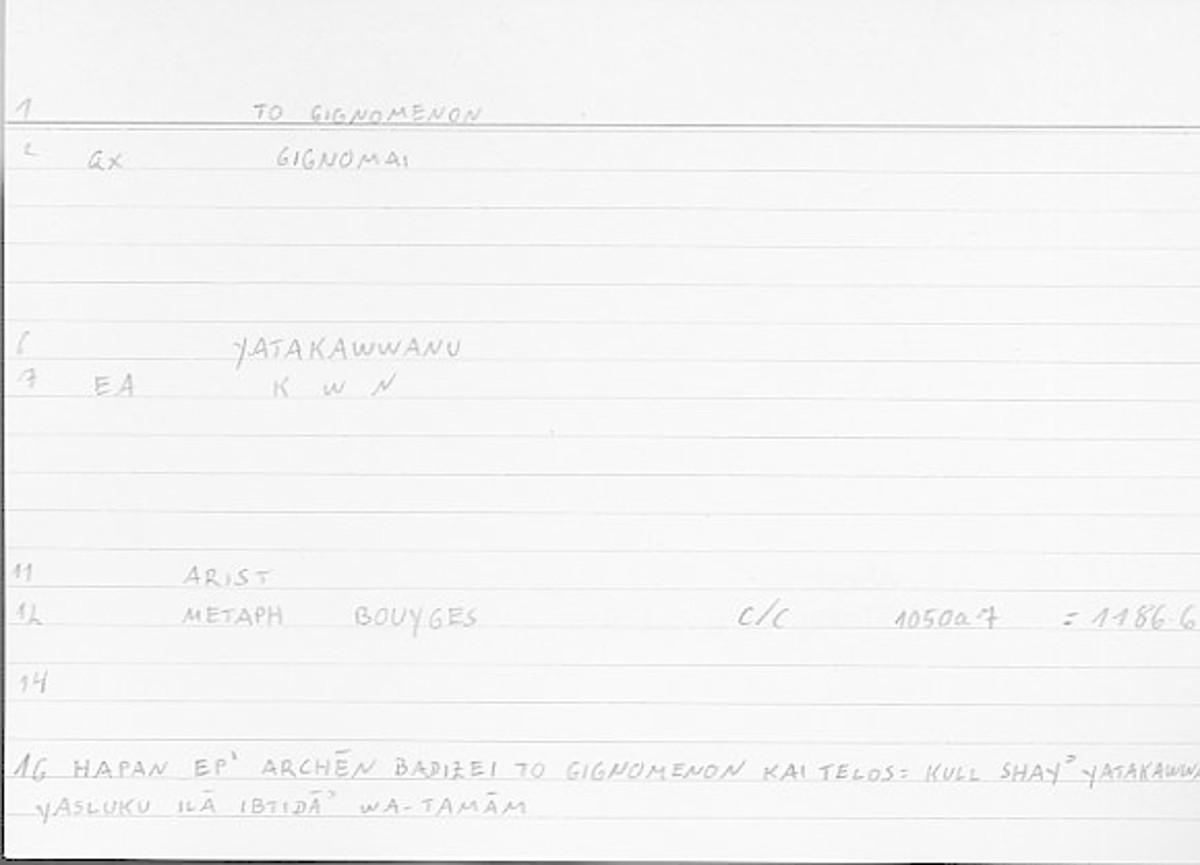 1 TO GIGNOMENON
2 GX GIGNOMAI
6 YATAKAWWANU
7 EA K W N
11 ARIST
12 METAPH BOUYGES C/C 1050a7 = 1186.6
14
16 HAPAN EP' ARCHĒN BADIZEI TO GIGNOMENON KAI TELOS: KULL SHAYʾ YATAKAWWA
YASLUKU ILĀ IBTIDĀʾ WA-TAMĀM